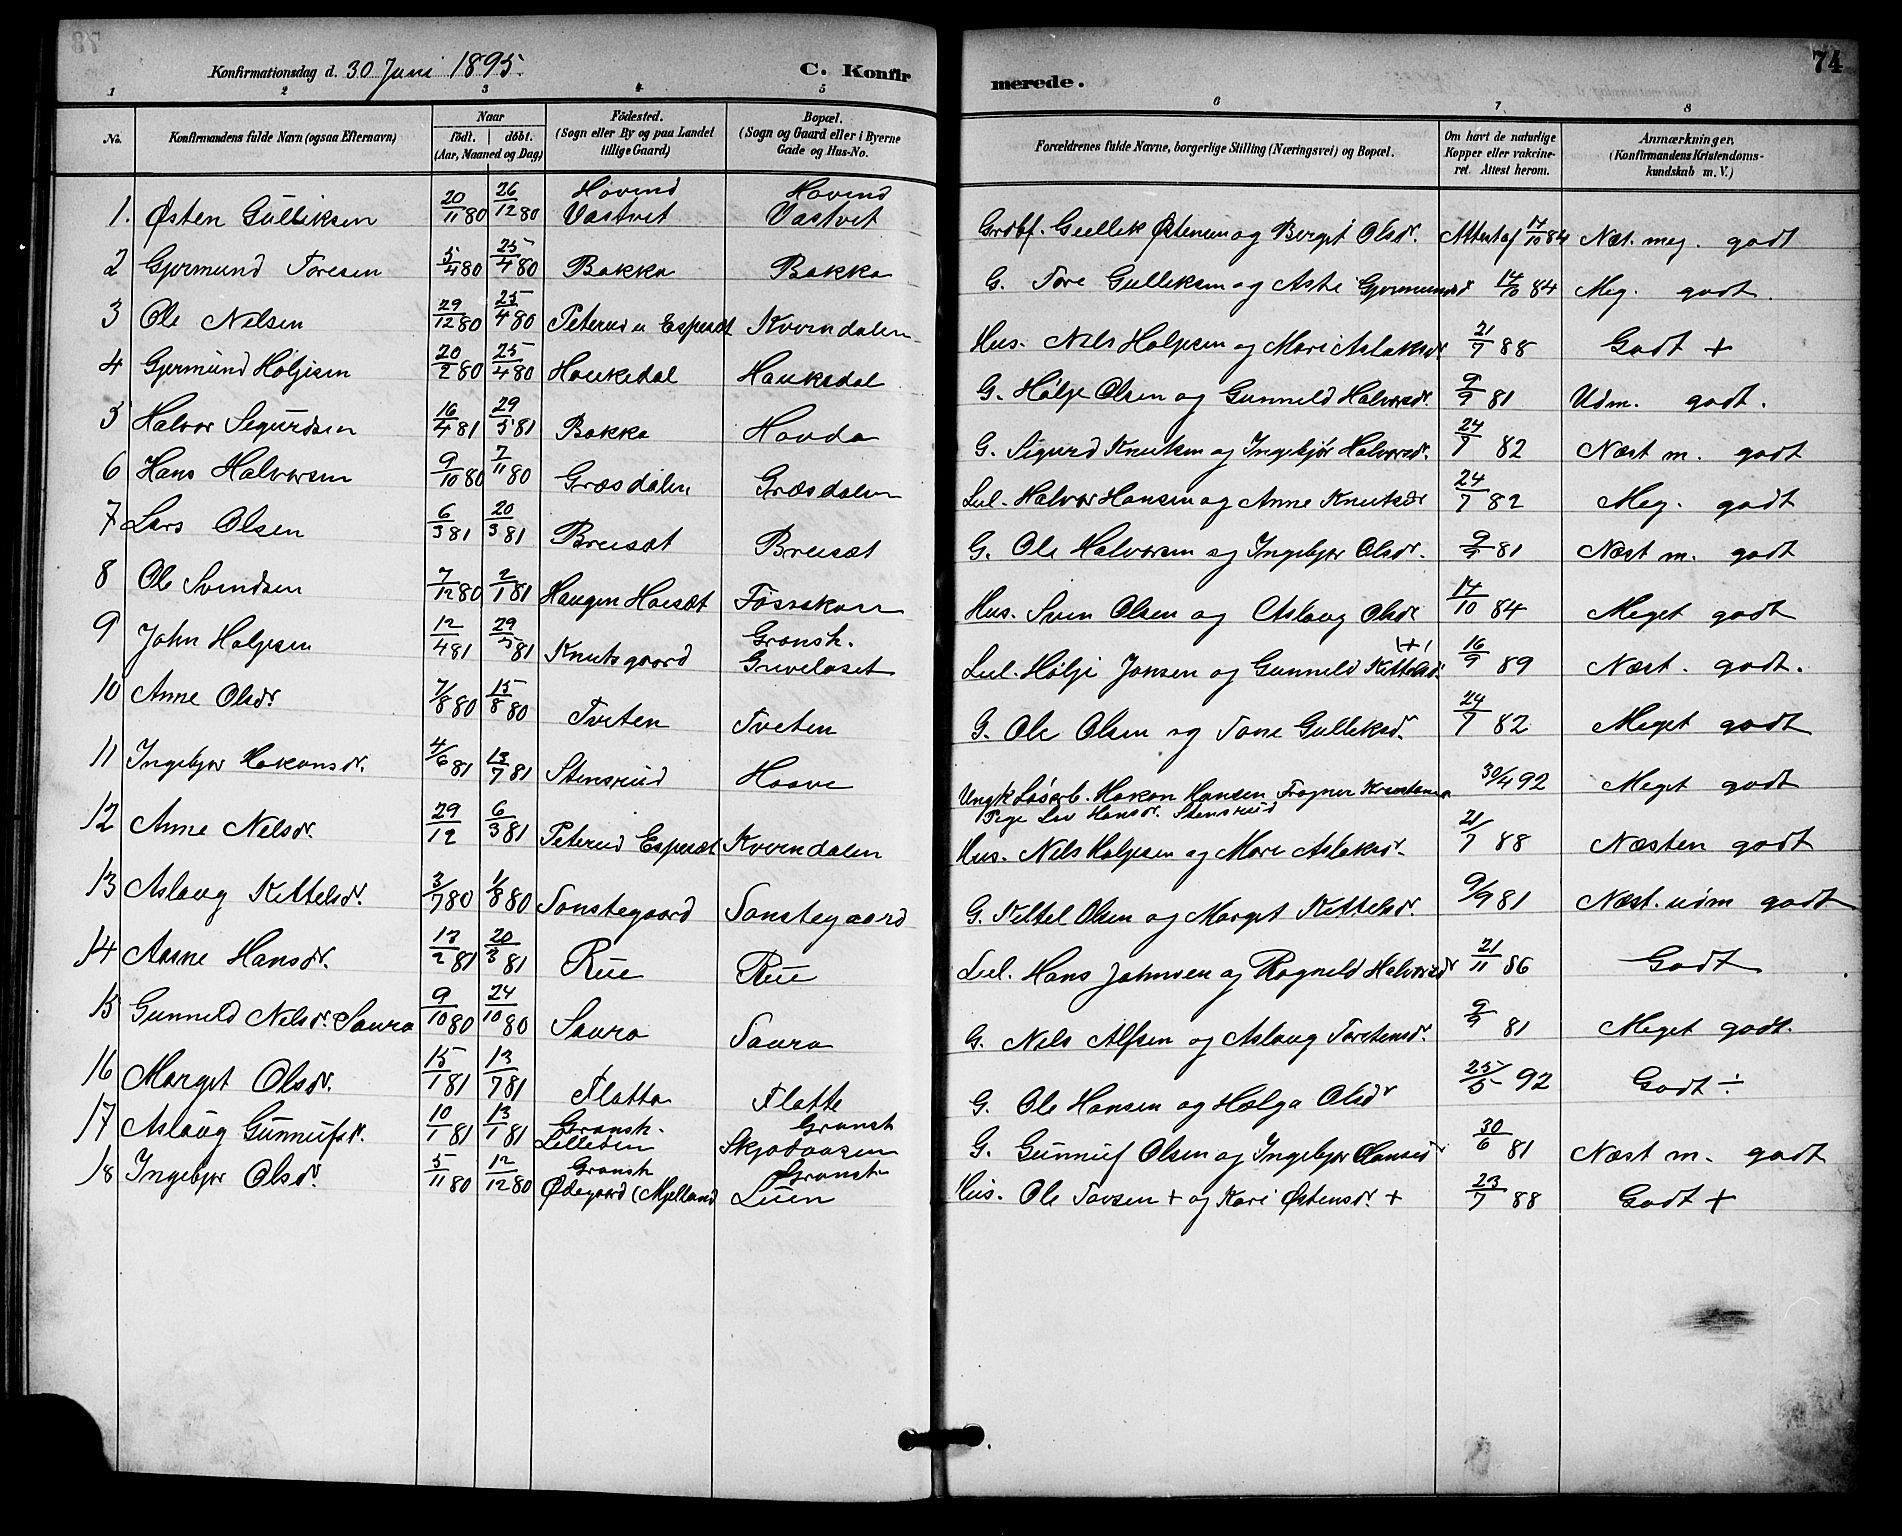 74
Konfirmationsdag d. 30 Juni 1895.
C. Konfirmerede.
1 2 3 4 5 6 7 8
No. Konfirmandens fulde Navn (ogsaa Efternavn) Naar født. døbt. (Aar, Maaned og Dag) Fødested. (Sogn eller By og paa Landet tillige Gaard) Bopæl. (Sogn og Gaard eller i Byerne Gade og Hus-No. Forældrenes fulde Navne, borgerlige Stilling (Næringsvei) og Bopæl. Om havt de naturlige Kopper eller vakcineret. Attest herom. Anmærkninger. (Konfirmandens Kristendomskundskab m. V.)
1. Østen Gulliksen 20/11 80 26/12 80 Hovind Vastvet Hovind Vastvet Grdbf. Gullik Østensen og Berget Olsdr. Attest af 17/10 84 Næst. meg. godt
2 Gjermund Toresen 5/4 80 25/4 80 Bakka Bakka G. Tore Gulleksen og Aste Gjermundsd 14/10 84 Meg. godt.
3 Ole Nelsen 29/12 80 25/4 80 Peterud u Espeset Kverndalen Hus. Nels Holjesen og Mari Aslaksdr 21/7 88 Godt +
4 Gjermund Høljesen 20/2 80 25/4 80 Haukedal Haukedal G. Hølje Olsen og Gunneld Halvorsdr. 9/9 81 Udm. godt.
5 Halvor Segurdsen 16/4 81 29/5 81 Bakka Hovda G. Sigurd Knutsen og Ingebjør Halvorsdr. 24/7 82 Næst m. godt
6 Hans Halvorsen 9/10 80 7/11 80 Græsdalen Græsdalen Lel. Halvor Hansen og Anne Knutsdr 24/7 82 Meg. godt
7 Lars Olsen 6/3 81 20/3 81 Breisæt Breisæt G. Ole Halvorsen og Ingebjør Olsdr. 9/9 81 Næst m. godt
8 Ole Svendsen 7/12 80 2/1 81 Haugen Hoesæt Fosskon Hus. Sven Olsen og Aslaug Olsdr 14/10 84 Meget godt
9 John Holjesen 12/4 81 29/5 81 Knutsgaard Gransh. Gruveloset Lel. Hølje Jonsen og Gunneld Kettelsd. (+) 16/9 89 Næst. godt.
10 Anne Olsdr 7/8 80 15/8 80 Tveten Tveten G. Ole Olsen og Tone Gulleksd. 24/7 82 Meget godt
11 Ingebjør Hakonsdr. 4/6 81 13/7 81 Stensrud Haave Ungk Løsarb. Hakon Hansen Frogner Pige Liv Hansdr. Stensrud 30/4 92 Meget godt
12 Anne Nelsdr. 29/12 6/3 81 Peterud Espeset Kverndalen Hus. Nels Holjesen og Mari Aslaksdr. 21/7 88 Næsten godt
13 Aslaug Kettelsdr. 3/7 80 1/8 80 Sønstegaard Sønstegaard G. Kettel Olsen og Marget Kettelsdr. 9/9 81 Næst. udm godt
14 Aasne Hansdr. 13/2 81 20/3 81 Rue Rue Lel. Hans Johnsen og Ragneld Halvorsdr 21/11 86 Godt
15 Gunneld Nelsdr. Saura 9/10 80 24/10 80 Saura Saura G. Nels Alfsen og Aslaug Torstensdr. 9/9 81 Meget godt.
16 Marget Olsdr. 15/1 81 13/7 81 Flatta Flatte G. Ole Hansen og Helga Olsdr 25/5 92 Godt ÷
17 Aslaug Gunnufsdr. 10/1 81 13/1 81 Gransh. Lilleøen Gransh Skjodaasen G. Gunnuf Olsen og Ingebjør Hansdr 30/6 81 Næst m. godt
18 Ingebjør Olsdr. 5/11 80 12/12 80 Gransh Ødegaard (Mjelland Gransh Luen Hus. Ole Tovsen + og Kari Østensdr. + 23/7 88 Godt +